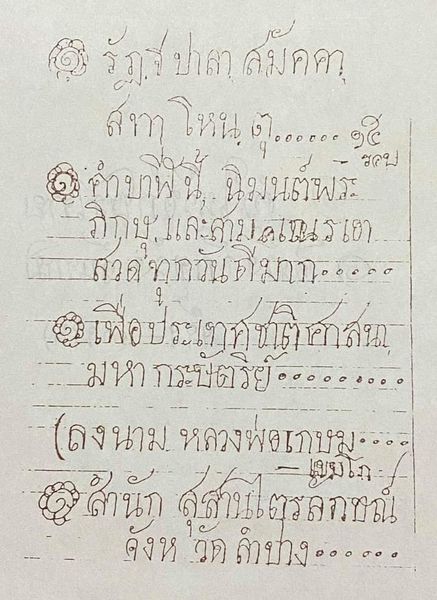 ๑ รัฏฺจี ปาลา, สมัคคา,
สทา โหนฺ ตุ...... ๑๕ รอบ
๑ คำบาฬีนี้, นิมนต์พระ
ภิกษุ, และสามเณร เอา
สวด ทุกวัน ดีมาก.....
๑ เพื่อประเทศชาติ ศาสนา,
มหา กระษัตริย์........
(ลงนาม หลวงพ่อเกษม....
— เขมโก
๑ สำนัก สุสานไตรลักษณ์
จังห วัด ลำปาง......